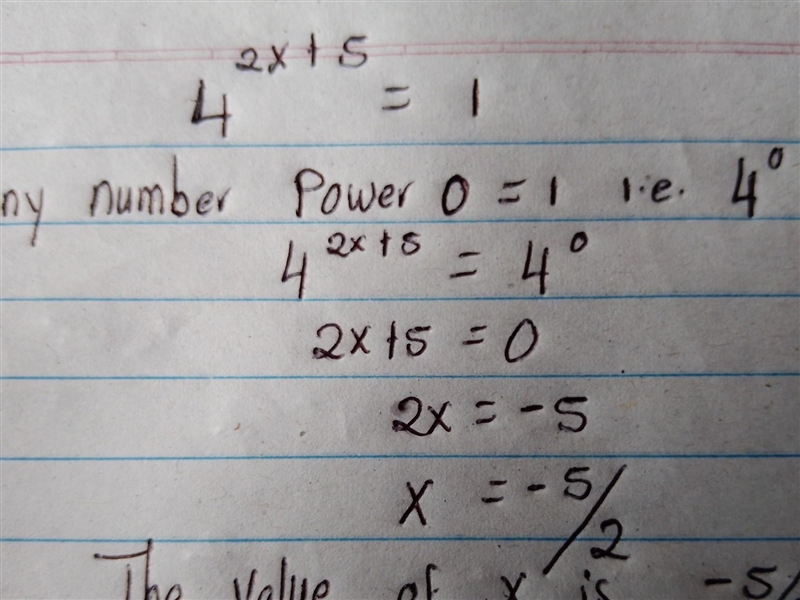 4^{2x+5} = 1
ny number Power 0 = 1 i.e. 4^0
4^{2x+5} = 4^0
2x+5 = 0
2x = -5
x = -5/2
The value of x is -5/